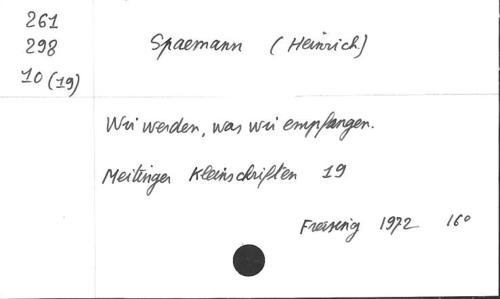 261
298
10 (19)
Spaemann (Heinrich)
Wir werden, was wir empfangen.
Meitinger Kleinschriften 19
Freising 1972 16°